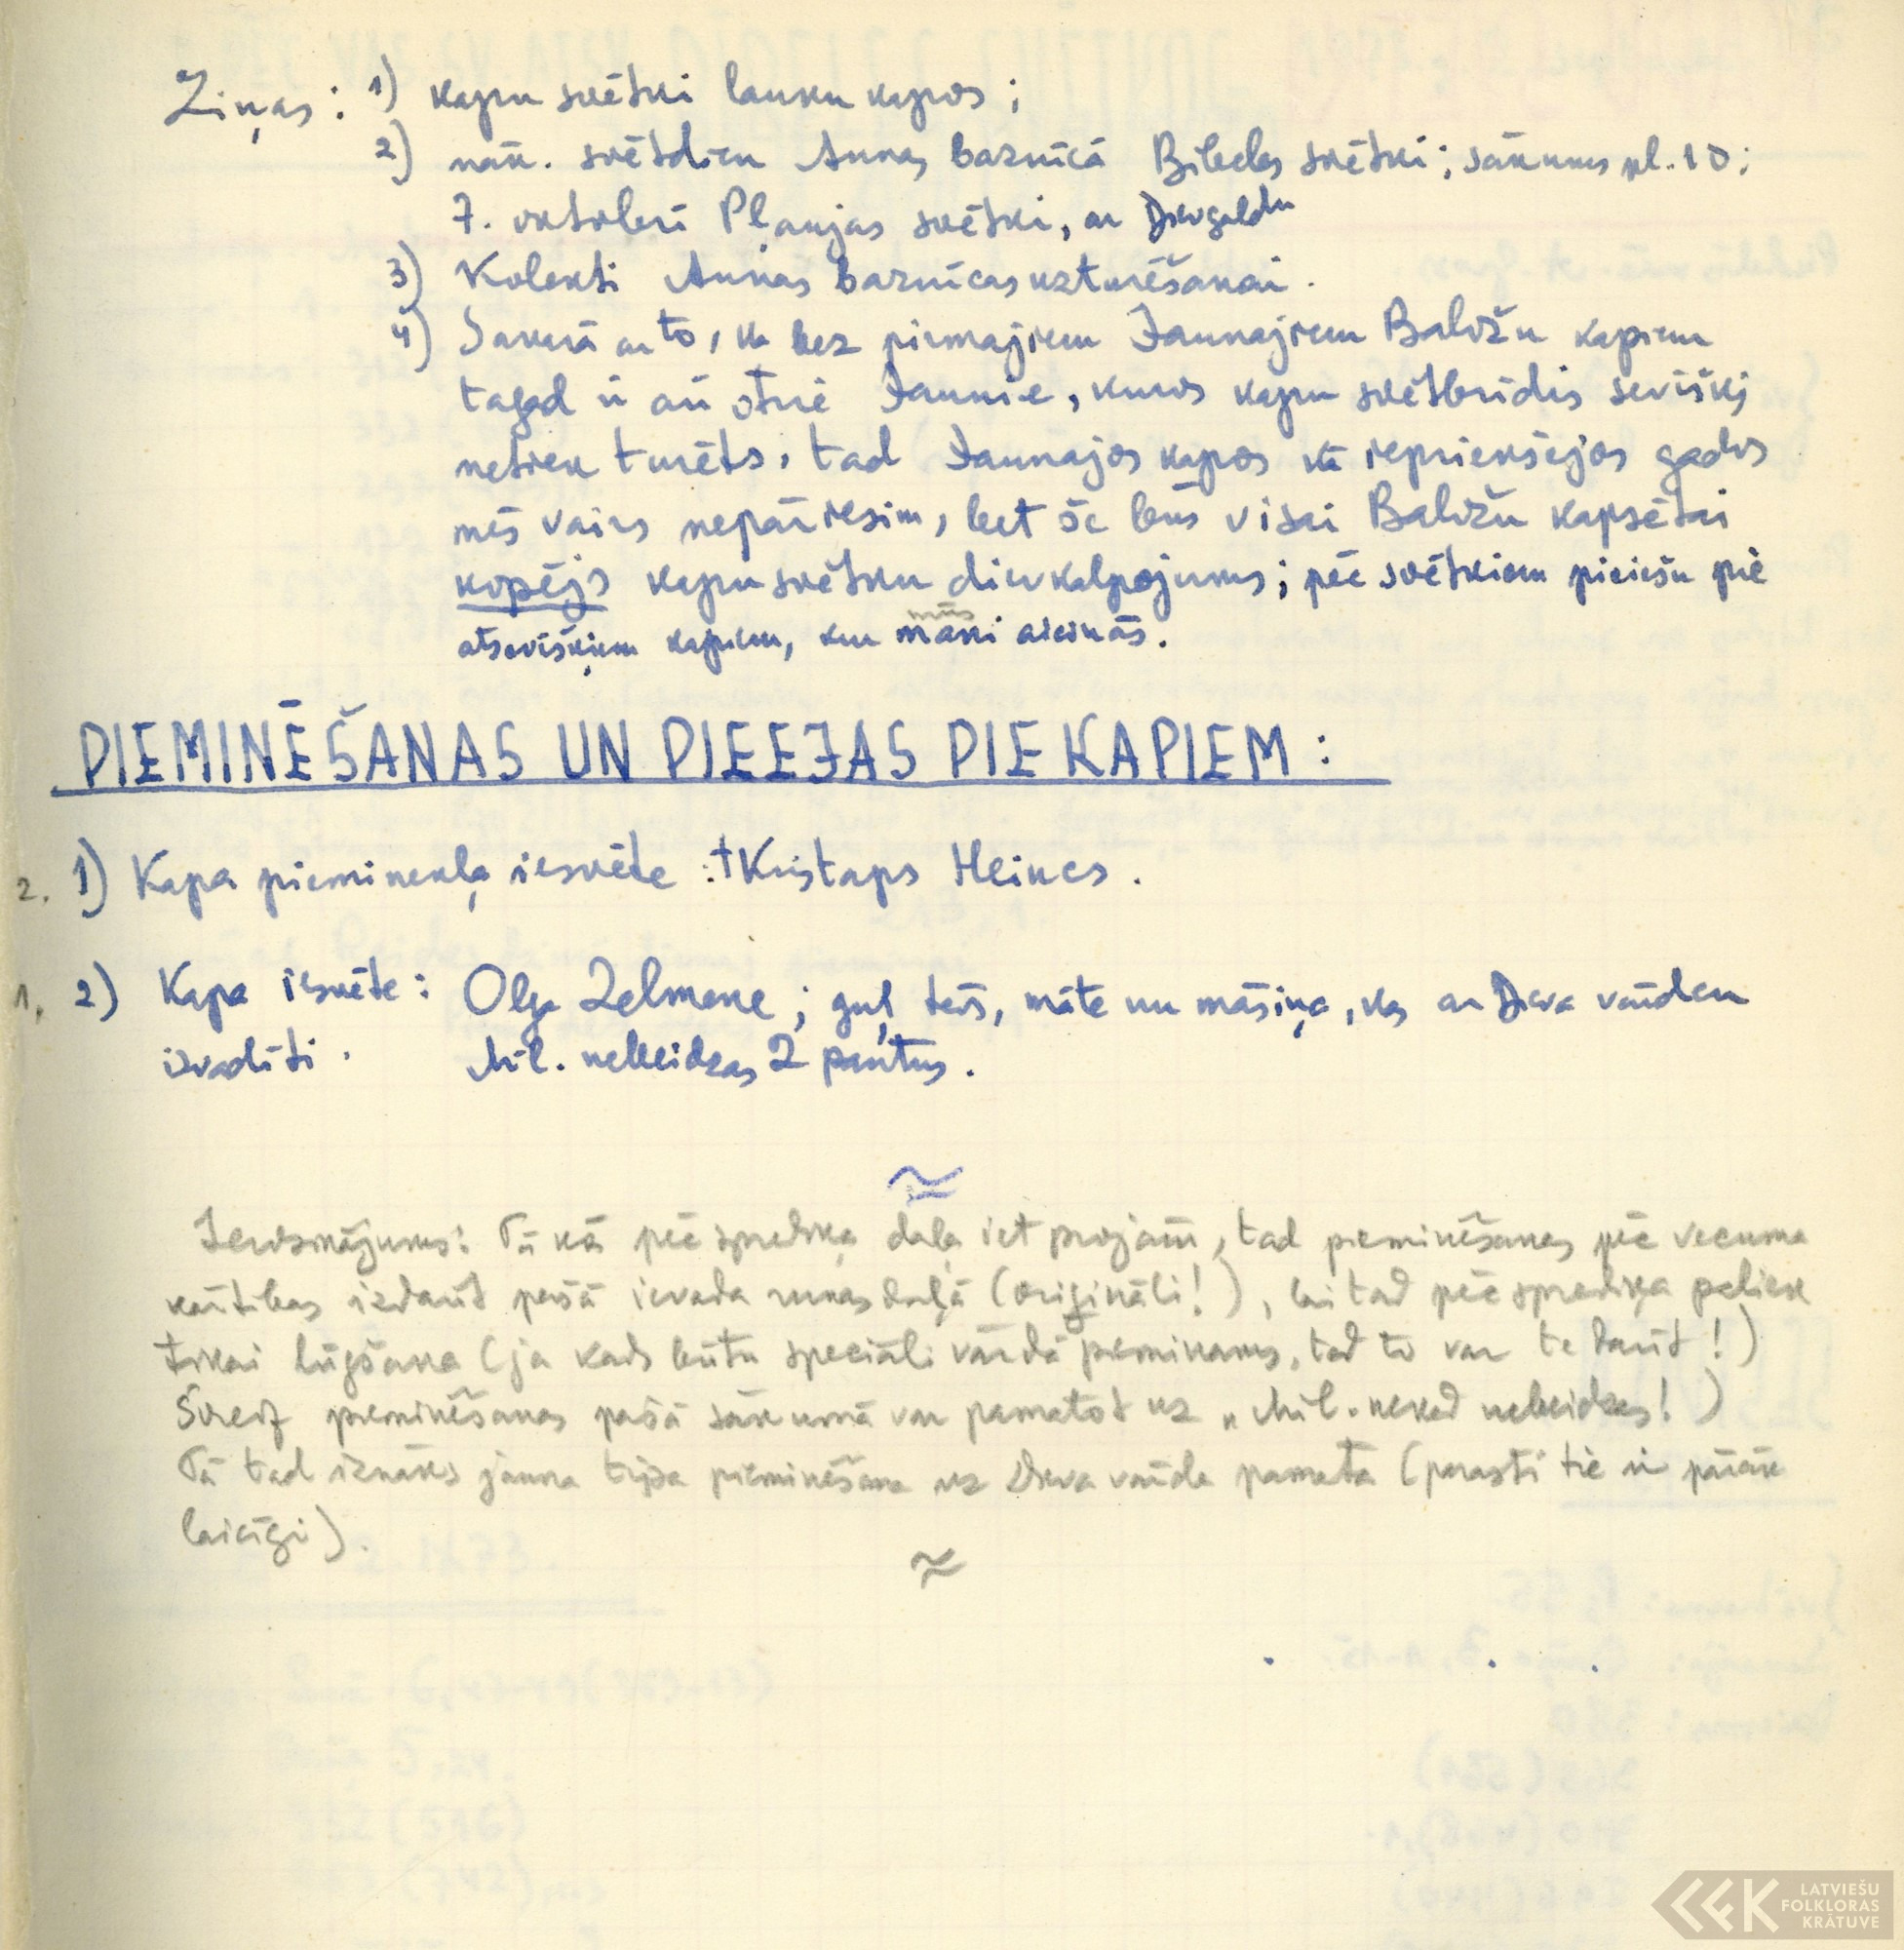 Ziņas: 1) kapu svētki lauku kapos;
2) nāk. svētdien Annas baznīcā Bībeles svētki; sākums pl. 10;
7. oktobrī Pļaujas svētki, ar Dievgaldu
3) Kolekti Annas baznīcas uzturēšanai.
4) Sakarā ar to, ka bez pirmajiem Jaunajiem Baložu kapiem
tagad ir arī otrie Jaunie, kuros kapu svētbrīdis sevišķi
netiek turēts, tad Jaunajos kapos kā iepriekšējos gados
mēs vairs nepāriesim, bet šie būs visai Baložu kapsētai
kopējs kapu svētku dievkalpojums; pēc svētkiem pieiešu pie
atsevišķiem kapiem, kur mani aicinās.
mūs
PIEMINĒŠANAS UN PIEEJAS PIE KAPIEM:
2. 1) Kapa pieminekļa iesvēte: †Kristaps Heincs.
1. 2) Kapa iesvēte: Olga Zelmene; guļ tēvs, māte un māsiņa, kas ar Dieva vārdu
izvadīti. Mīl. nebeidzas 2 pantus.
Ierosinājums: Tā kā pēc sprediķa daļa iet projām, tad pieminēšanas pēc vecuma
kārtības izdarīt pašā ievada runas daļā (oriģināli!), lai tad pēc sprediķa paliek
tikai lūgšana (ja kāds būtu speciāli vārdā pieminams, tad to var te darīt!)
Svreiz pieminēšanas pašā sākumā var pamatot uz „Mīl. nekad nebeidzas!)
Tā tad iznāks jauna tipa pieminēšana uz Dieva vārda pamata (parasti tie ir pārāk
laicīgi).
LATVIEŠU
FOLKLORAS
KRĀTUVE